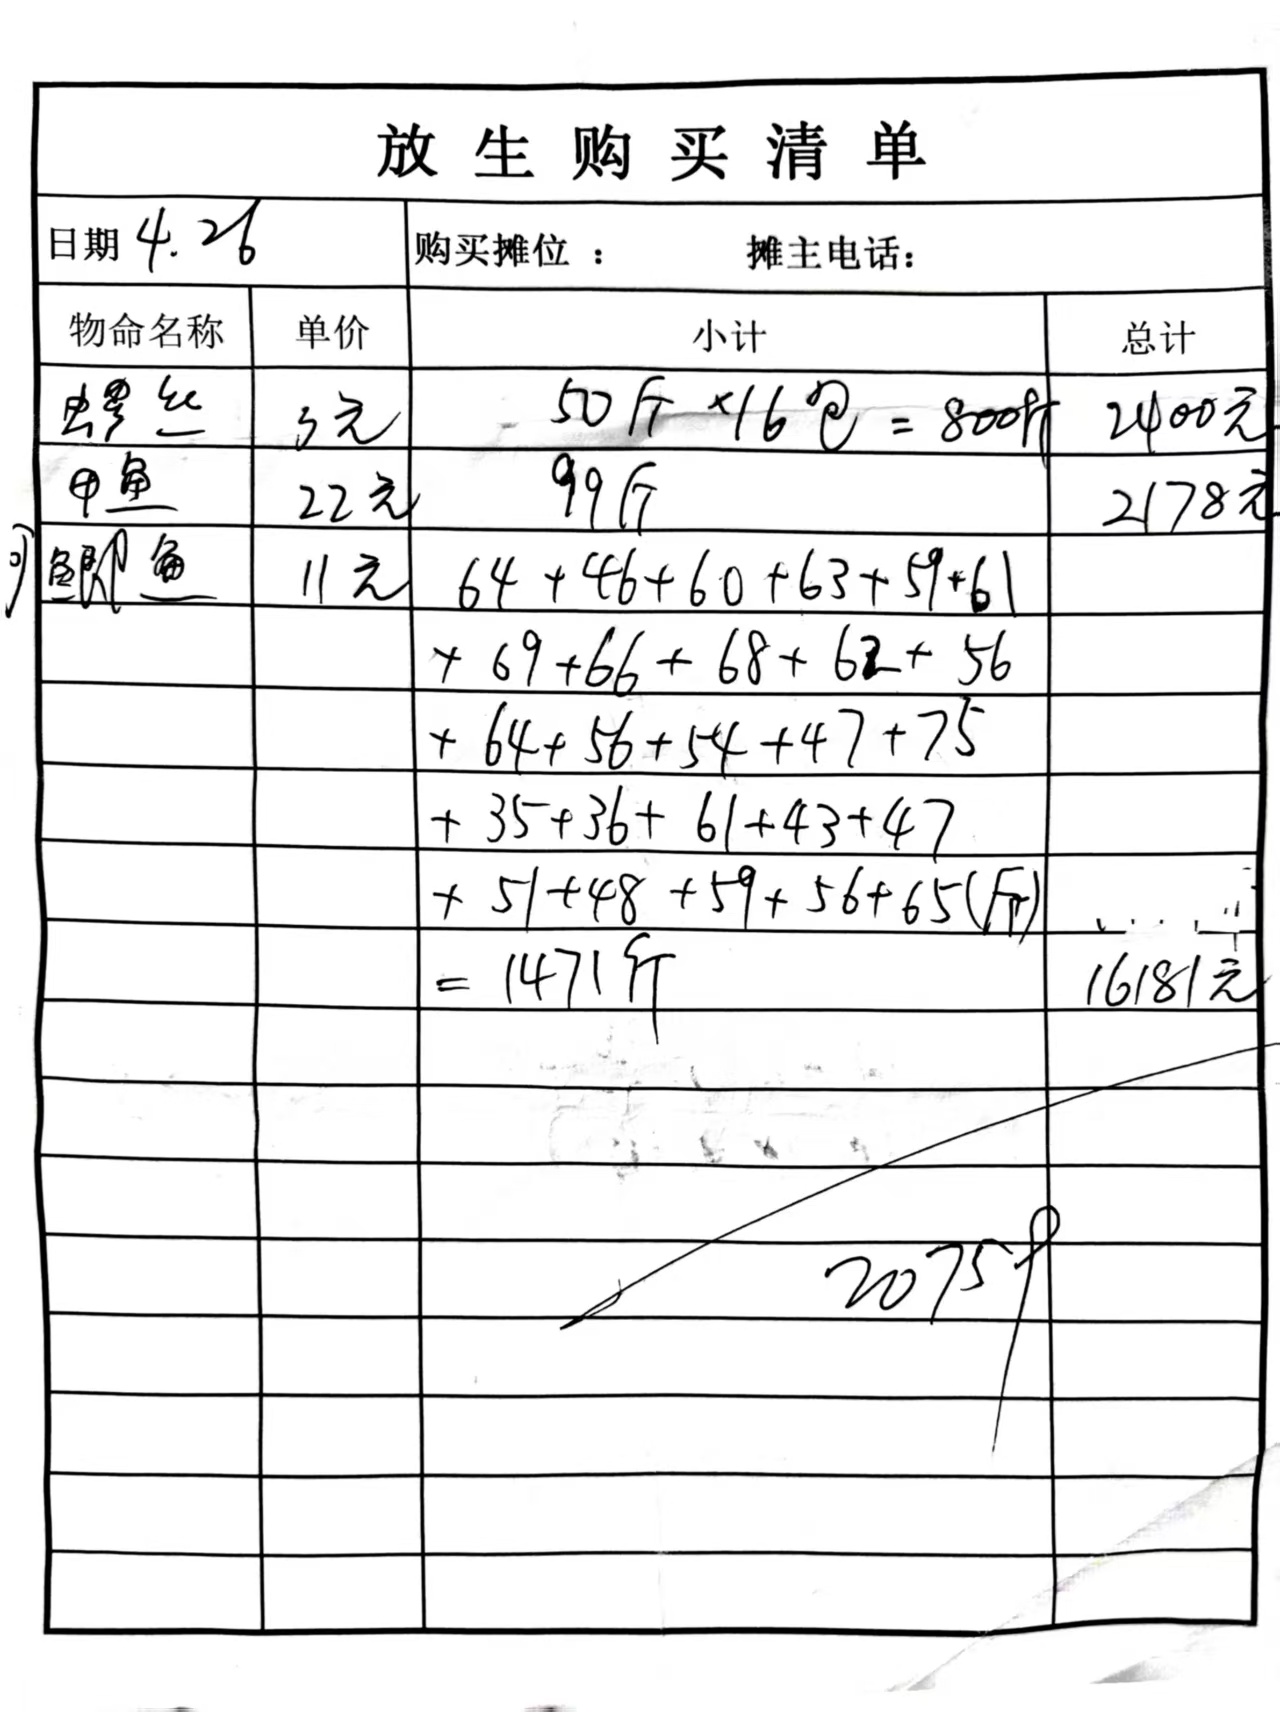 放生购买清单
日期 4.26 购买摊位： 摊主电话：
物命名称 单价 小计 总计
螺丝 3元 50斤×16包=800斤 2400元
甲鱼 22元 99斤 2178元
鲫鱼 11元 64+46+60+63+59+61
+69+66+68+62+56
+64+56+54+47+75
+35+36+61+43+47
+51+48+59+56+65(斤)
=1471斤 16181元
2075